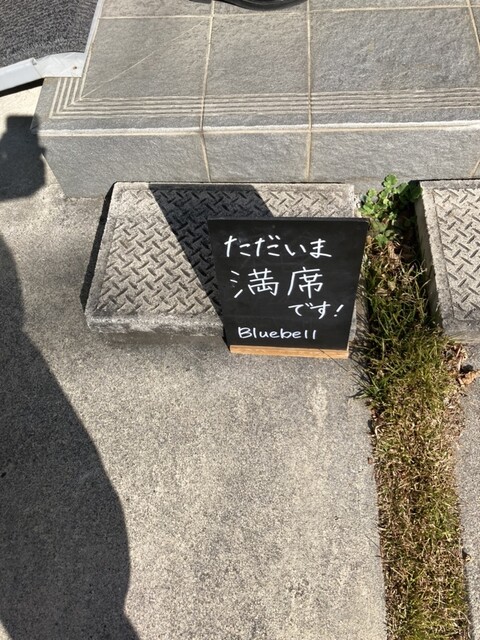 ただいま
満席
です!
Bluebell